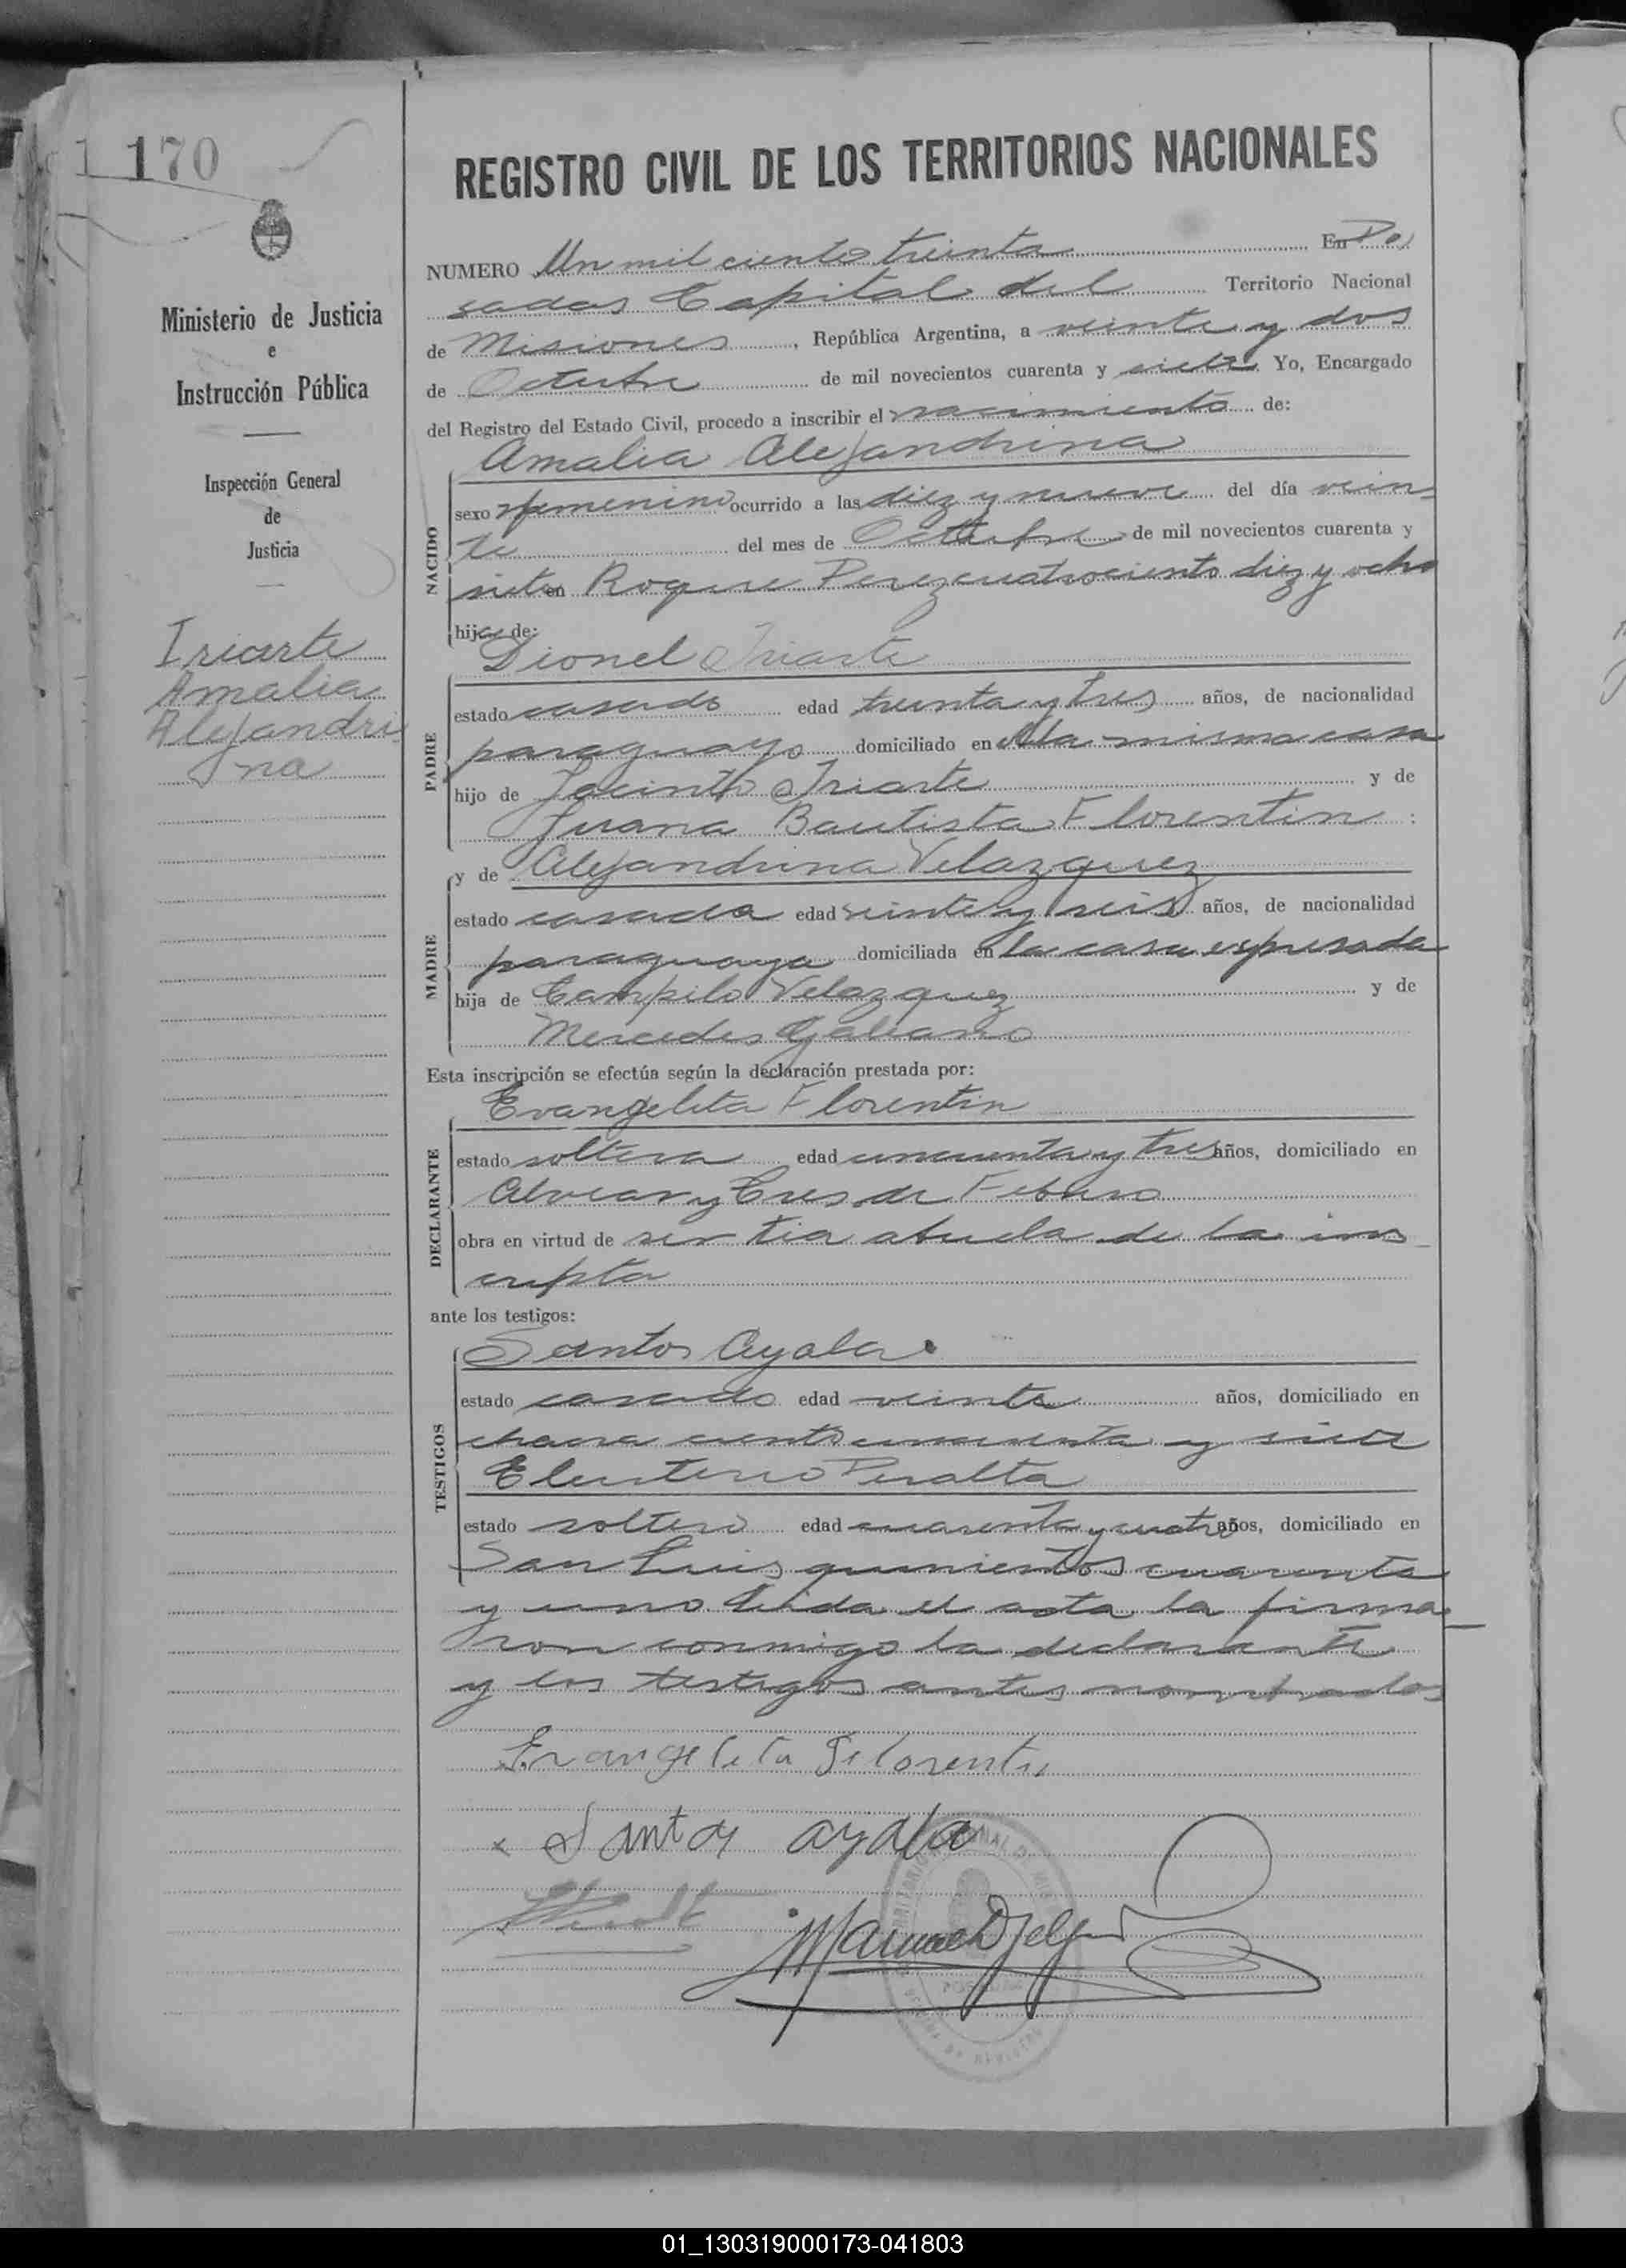 1 170
REGISTRO CIVIL DE LOS TERRITORIOS NACIONALES
Ministerio de Justicia
e
Instrucción Pública
Inspección General
de
Justicia
Iriarte
Amalia
Alejandri
na
NUMERO Un mil ciento treinta En Po
sadas Capital del Territorio Nacional
de Misiones, República Argentina, a veinte y dos
de Octubre de mil novecientos cuarenta y siete Yo, Encargado
del Registro del Estado Civil, procedo a inscribir el nacimiento de:
Amalia Alejandrina
NACIDO
sexo femenino ocurrido a las diez y nueve del día vein-
te del mes de Octubre de mil novecientos cuarenta y
siete en Roque Perez cuatrocientos diez y ocho
hija de:
Lionel Iriarte
PADRE
estado casado edad treinta y tres años, de nacionalidad
paraguayo domiciliado en la misma casa
hijo de Jacinto Iriarte y de
Juana Bautista Florentin :
y de Alejandrina Velazquez
MADRE
estado casada edad veinte y seis años, de nacionalidad
paraguaya domiciliada en la casa expresada
hija de Campilo Velazquez y de
Mercedes Galeano
Esta inscripción se efectúa según la declaración prestada por:
Evangelita Florentin
DECLARANTE
estado soltera edad cincuenta y tres años, domiciliado en
Alvear y Tres de Febrero
obra en virtud de ser tia abuela de la ins
cripta
ante los testigos:
Santos Ayala
TESTIGOS
estado casado edad veinte años, domiciliado en
chacra ciento cincuenta y siete
Eleuterio Peralta
estado soltero edad cuarenta y cuatro años, domiciliado en
San Luis quinientos cuarenta
y uno Leida el acta la firma
ron conmigo la declarante
y los testigos antes nombrados
Evangelita Florentin
Santos ayala
01_130319000173-041803